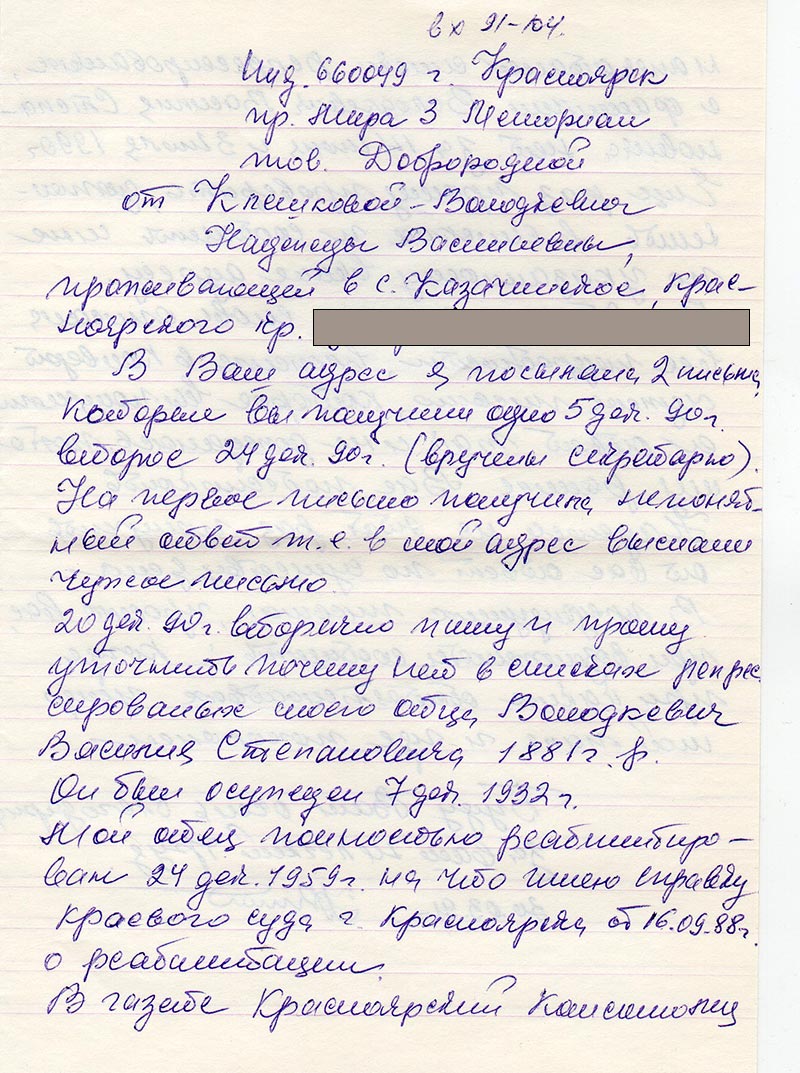 вх 91-104.
Инд. 660049 г. Красноярск
пр. Мира 3 Мемориал
тов. Доброродной
от Клешковой-Володкевич
Надежды Васильевны,
проживающей в с. Казачинское, Крас-
ноярского кр.
В Ваш адрес я посылала 2 письма,
которые вы получили одно 5 дек. 90 г.
второе 24 дек. 90 г. (вручены секретарю).
На первое письмо получила непонят-
ный ответ т. е. в мой адрес выслали
чужое письмо.
20 дек. 90 г. вторично пишу и прошу
уточнить почему нет в списках репрес
сированых моего отца Володкевич
Василия Степановича 1881 г. р.
Он был осужден 7 дек. 1932 г.
Мой отец полностью реабилитиро-
ван 24 дек. 1959 г. на что имею справку
краевого суда г. Красноярска от 16.09.88 г.
о реабилитации.
В газете Красноярский Комсомолец